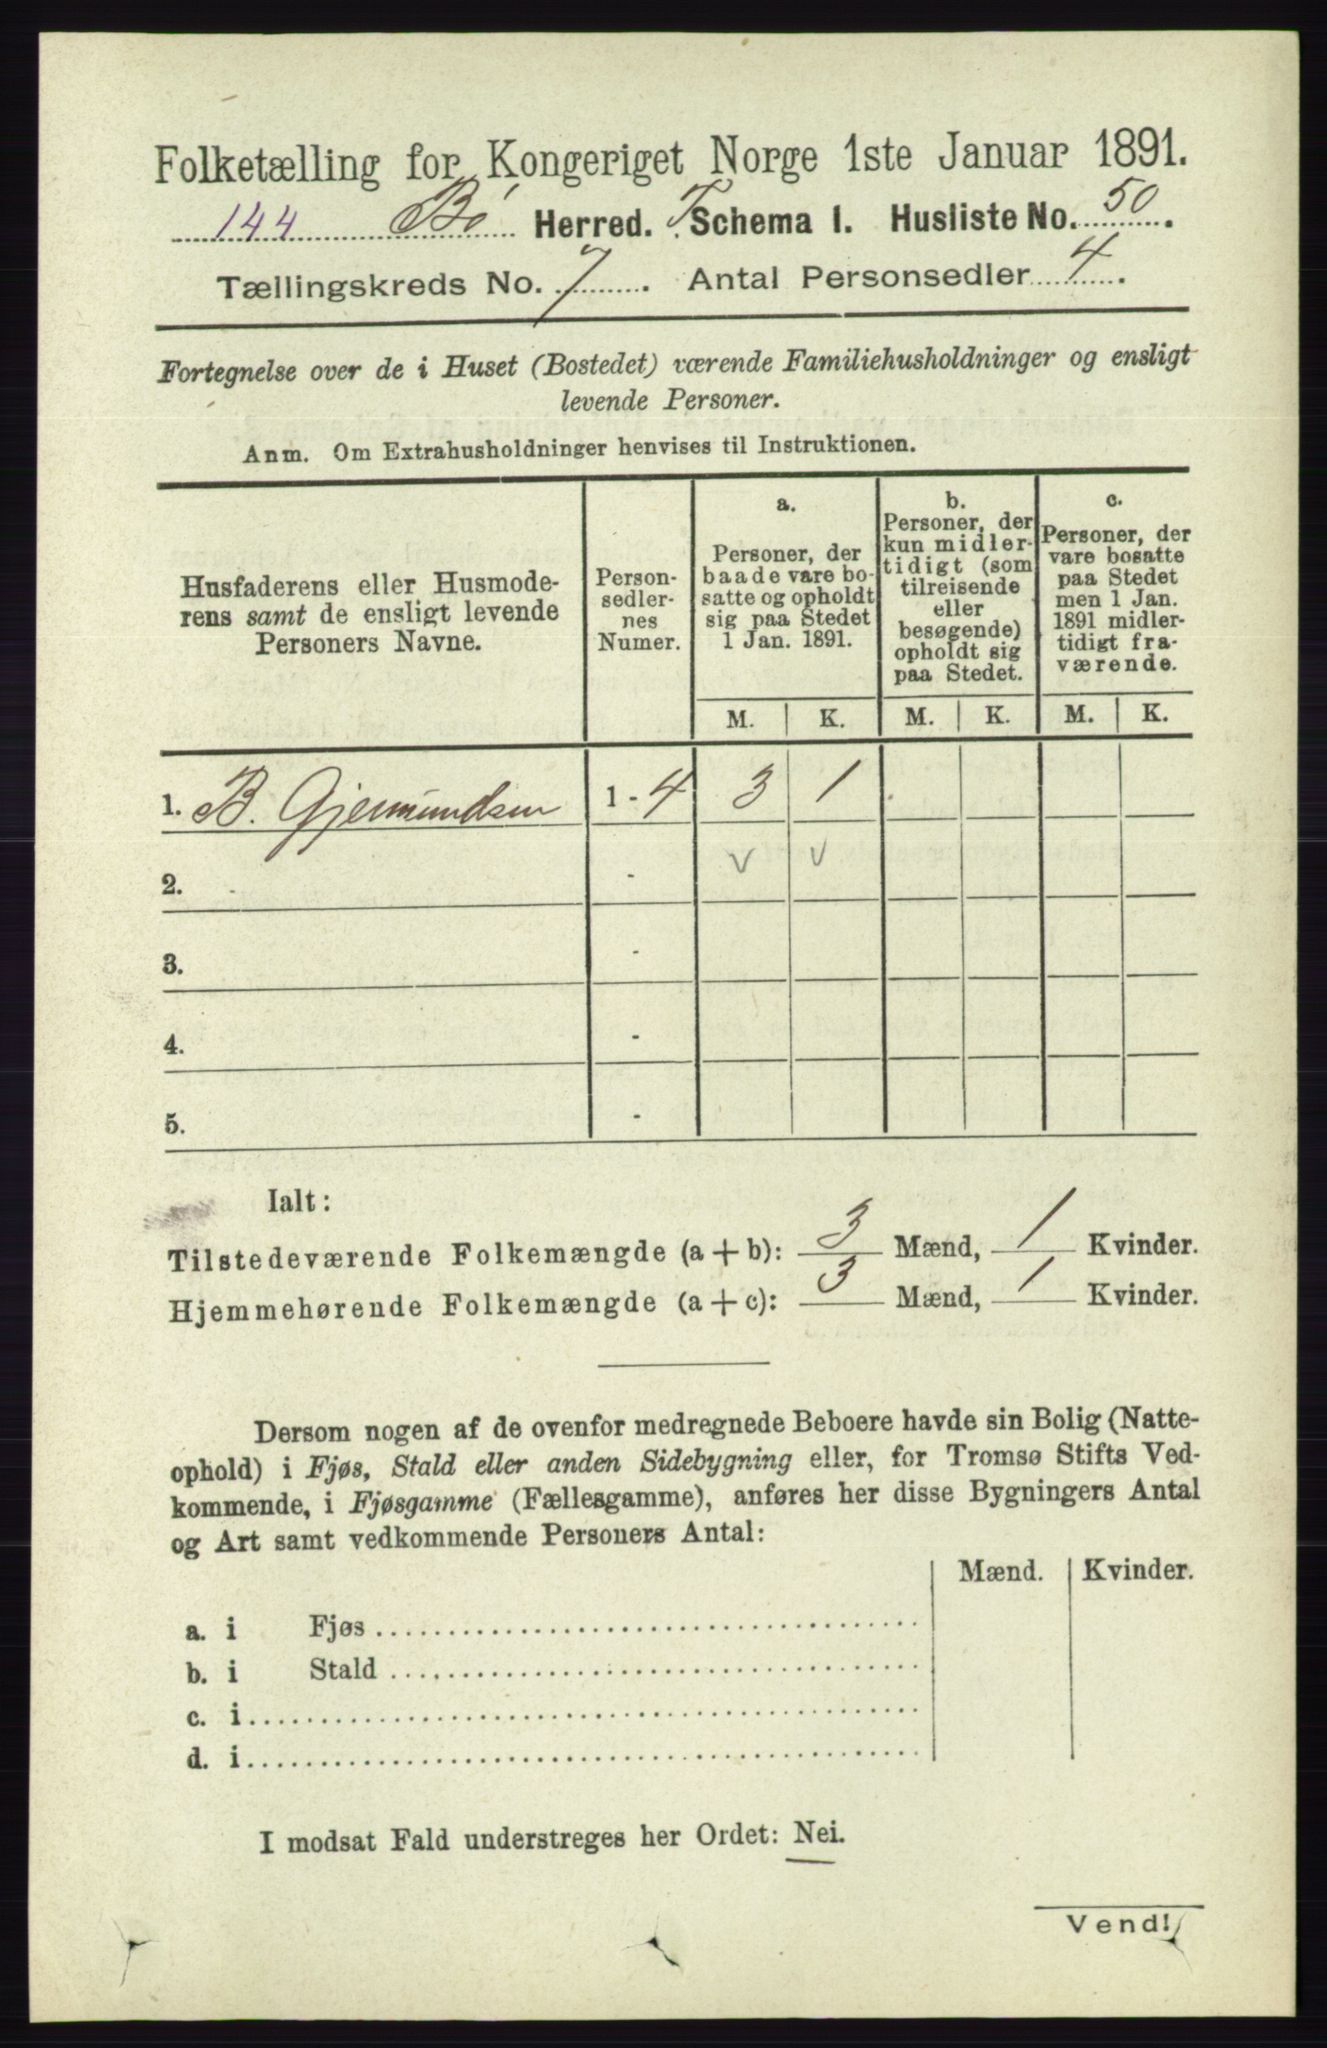 Folketælling for Kongeriget Norge 1ste Januar 1891.
144 Bø Herred. T. Schema 1. Husliste No. 50.
Tællingskreds No. 7. Antal Personsedler 4.
Fortegnelse over de i Huset (Bostedet) værende Familiehusholdninger og ensligt
levende Personer.
Anm. Om Extrahusholdninger henvises til Instruktionen.
Husfaderens eller Husmode-
rens samt de ensligt levende
Personers Navne.
Person-
sedler-
nes
Numer.
a.
Personer, der
baade vare bo-
satte og opholdt
sig paa Stedet
1 Jan. 1891.
b.
Personer, der
kun midler-
tidigt (som
tilreisende
eller
besøgende)
opholdt sig
paa Stedet.
c.
Personer, der
vare bosatte
paa Stedet
men 1 Jan.
1891 midler-
tidigt fra-
værende.
M. K. M. K. M. K.
1. B. Gjermundsen 1 - 4 3 1
2. - v v
3. -
4. -
5. -
Ialt:
Tilstedeværende Folkemængde (a + b): 3 Mænd, 1 Kvinder.
Hjemmehørende Folkemængde (a + c): 3 Mænd, 1 Kvinder.
Dersom nogen af de ovenfor medregnede Beboere havde sin Bolig (Natte-
ophold) i Fjøs, Stald eller anden Sidebygning eller, for Tromsø Stifts Ved-
kommende, i Fjøsgamme (Fællesgamme), anføres her disse Bygningers Antal
og Art samt vedkommende Personers Antal:
Mænd. Kvinder.
a. i Fjøs
b. i Stald
c. i
d. i
I modsat Fald understreges her Ordet: Nei.
Vend!